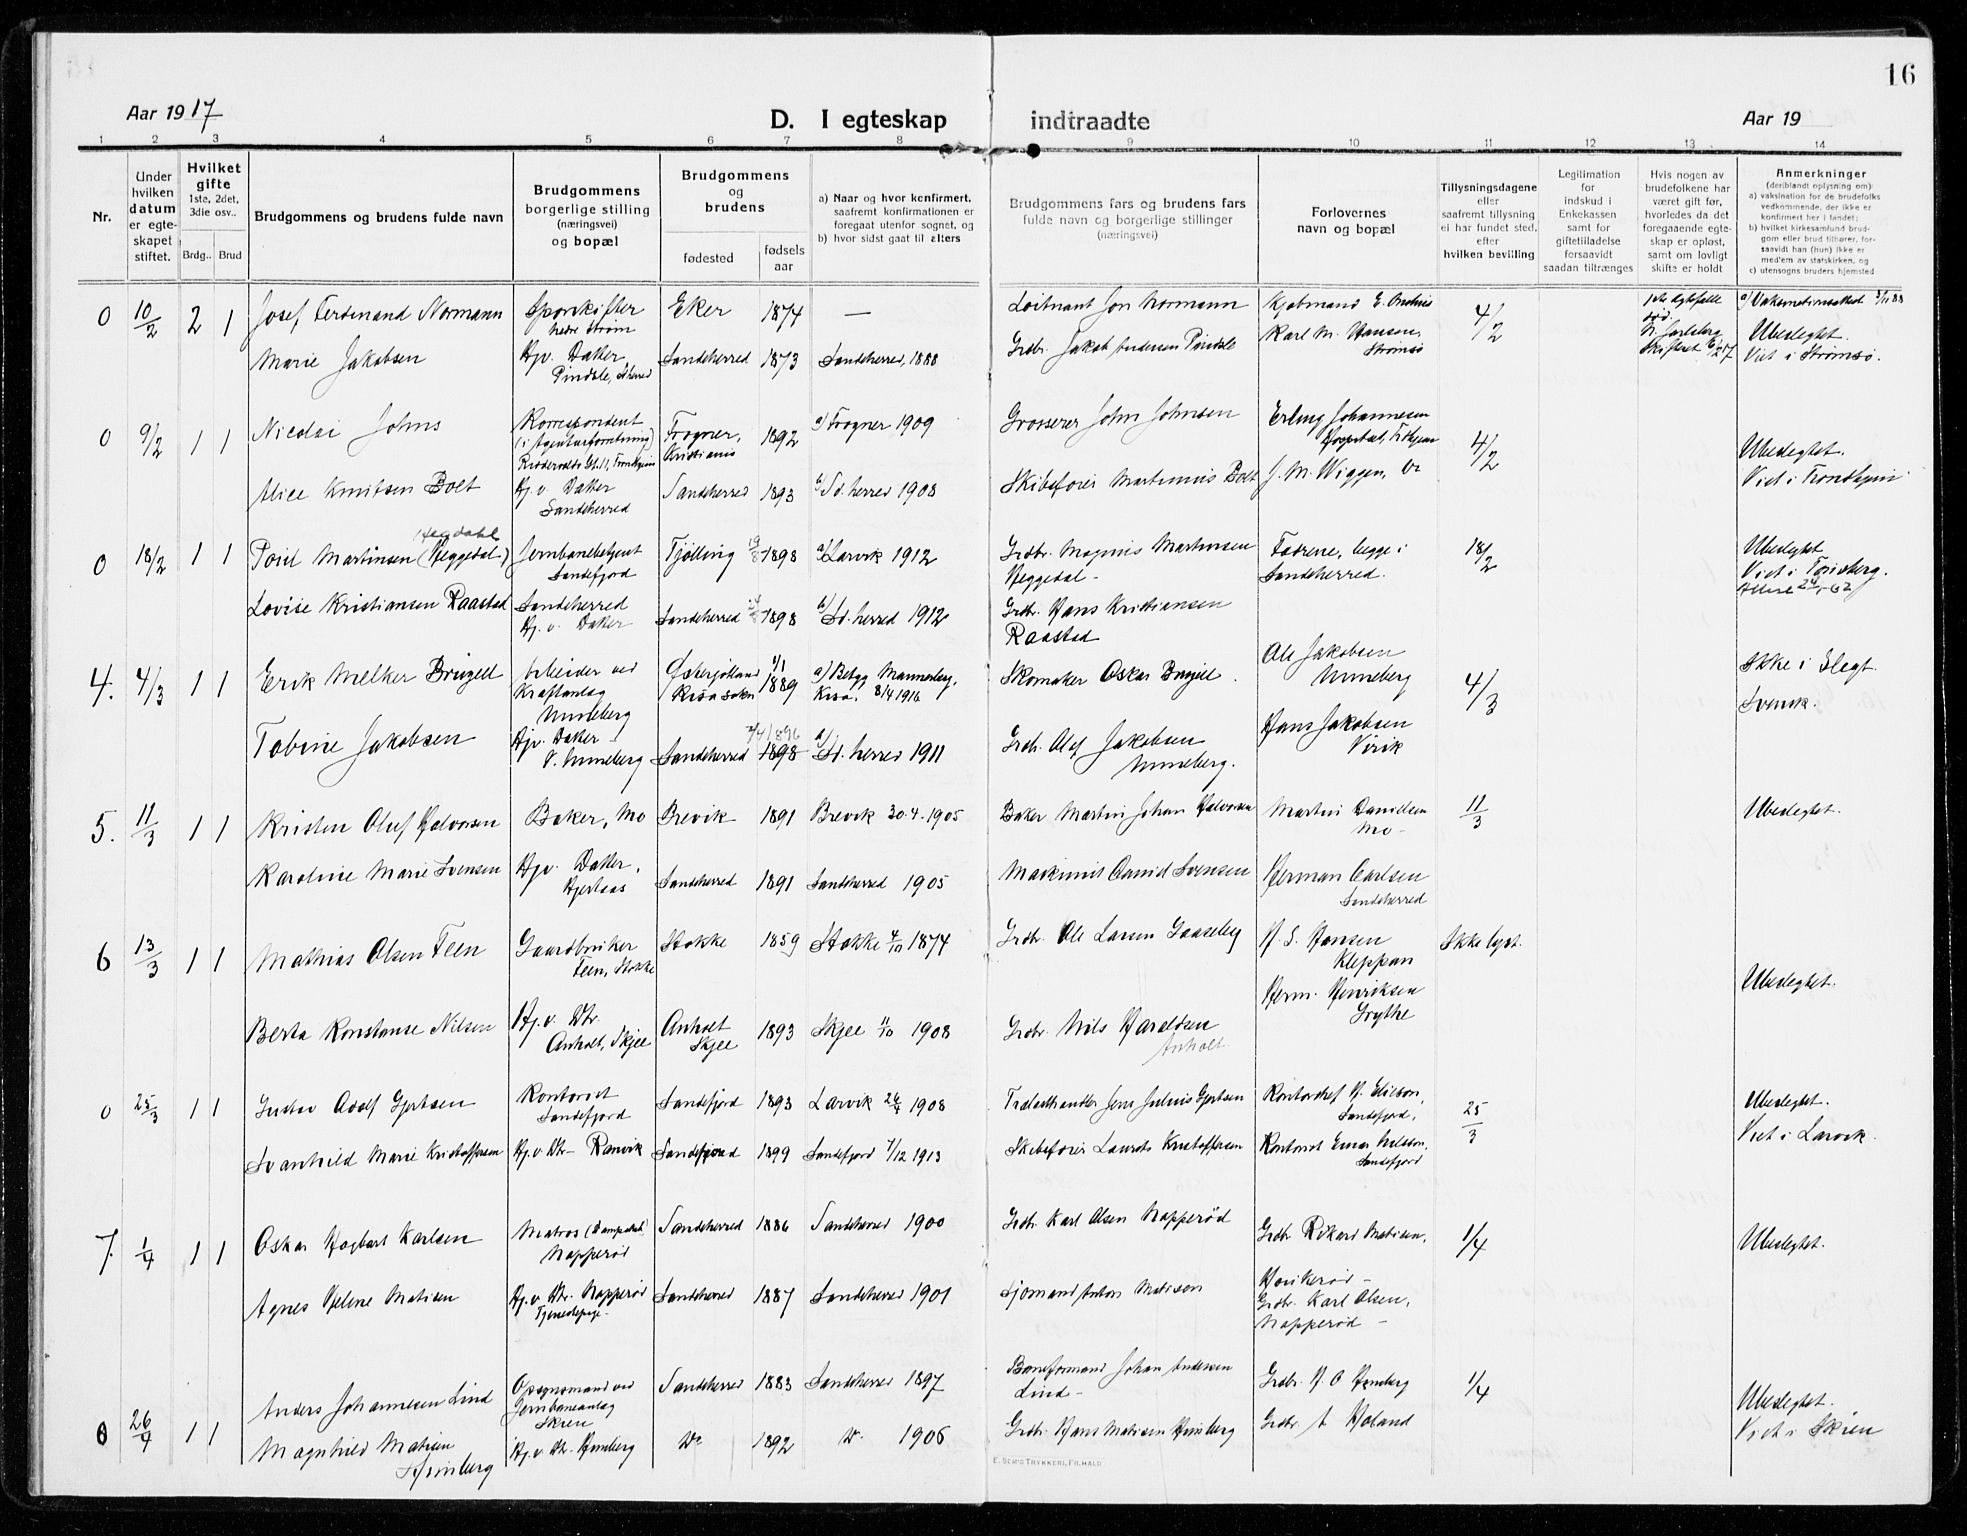 16
Aar 1917
D. I egteskap indtraadte
Aar 19
1 2 3 4 5 6 7 8 9 10 11 12 13 14
Nr.
Under hvilken datum er egteskapet stiftet.
Hvilket gifte
1ste, 2det, 3die osv..
Brdg.. Brud
Brudgommens og brudens fulde navn
Brudgommens borgerlige stilling (næringsvei) og bopæl
Brudgommens og brudens
fødested
fødsels aar
a) Naar og hvor konfirmert, saafremt konfirmationen er foregaat utenfor sognet, og
b) hvor sidst gaat til alters
Brudgommens fars og brudens fars fulde navn og borgerlige stillinger (næringsvei)
Forlovernes navn og bopæl
Tillysningsdagene eller saafremt tillysning ei har fundet sted, efter hvilken bevilling
Legitimation for indskud i Enkekassen samt for giftetilladelse forsaavidt saadan tiltrænges
Hvis nogen av brudefolkene har været gift før, hvorledes da det foregaaende egteskap er opløst, samt om lovligt skifte er holdt
Anmerkninger
(deriblandt oplysning om)
a) vaksination for de brudefolks vedkommende, der ikke er konfirmert her i landet;
b) hvilket kirkesamfund brudgom eller brud tilhører, forsaavidt han (hun) ikke er medlem av statskirken, og
c) utensogns bruders hjemsted
0 10/2 2 1 Josef Ferdinand Normann Sporskifter nedre Strøm Eker 1874 — Løitnant Jon Normann Kjøbmand E. 4/2 1ste egtefelle død. N. Jarlsberg Skifteret 6/2 17 a) Vaksinationsattest
Marie Jakobsen Hjv. Datter Pindsle, Sherred Sandeherred 1873 Sandeherred, 1888 Grdbr. Jakob Andersen Pindsle Karl M. Hansen, Strømsø Ubeslegtet. Viet i Strømsø.
0 9/2 1 1 Nicolai Johns Korrespondent (i Agenturforretning) Trondhjem Frogner, Kristiania 1892 a) Frogner 1909 Grosserer John Johnsen Erling Johannesen Hospitalet, Trdhjem 4/2 Ubeslegtet. Viet i Trondhjem
Alice Knutsen Bolt Hj. v. Datter Sandeherred Sandeherred 1893 b) Sd. herred 1908 Skibsfører Martinius Bolt J. M. Wiggen,
0 18/2 1 1 Poul Martinsen (Heggedal) Hegdahl Jernbanebetjent Sandefjord Tjølling 19/8 1898 a) Larvik 1912 Grdbr. Magnus Martinsen Heggedal - Fædrene, begge i Sandeherred. 18/2 Ubeslegtet Viet i Tønsberg.
Lovise Kristiansen Raastad Sandeherred Hj. v. Datter Sandeherred 1898 b) Sd. herred 1912 Grdbr. Hans Kristiansen Raastad
4. 4/3 1 1 Erik Melker Bruzell Arbeider ved Kraftanlæg Unneberg Østergötland Kisa sokn 1/1 1889 a) Betyg Kisa. 8/4 1916 Skomaker Oskar Bruzell. Ole Jakobsen Unneberg 4/3 Ikke i Slegt. Svensk.
Tobine Jakobsen Hjv. Datter Unneberg Sandeherred 1898 4/1896 a) Sd. herred 1911 Grdb. Olef Jakobsen Unneberg. Hans Jakobsen Virik
5. 11/3 1 1 Kristen Oluf Halvorsen Baker, Mo Brevik 1891 Brevik 30.4.1905 Baker Martin Johan Halvorsen Martin Danielsen Mo - 11/3 Ubeslegtet.
Karoline Marie Svensen Hjv. Datter, Hjertaas Sandeherred 1891 Sandeherred 1905 David Svensen Herman Carlsen Sandeherred
6 13/3 1 1 Mathias Olsen Feen Gaardbruker Feen, Stokke Stokke 1859 Stokke 4/10 1874 Grdbr. Ole Larsen Gaaseby H. S. Hansen Kleppan Ikke lyst. Ubeslegtet.
Berta Konstanse Nilsen Hj. v. Dtr. Anholt, Skjee Anholt Skjee 1893 Skjee 11/10 1908 Grdbr. Nils Haraldsen Anholt Herm. Henriksen Grythe
0 25/3 1 1 Gustav Adolf Gjertsen Kontorist Sandefjord Sandefjord 1893 Larvik 26/4 1908 Trælasthandler Jens Julius Gjertsen Kontorchef H. Sandefjord. 25/3 Ubeslegtet. Viet i Larvik.
Svanhild Marie Kristoffersen Hj. v Dtr - Ranvik Sandefjord 1899 Sandefjord 7/12 1913 Skibsfører Laurits Kristoffersen Kontorist Einar Nilsson, Sandefjord
7. 1/4 1 1 Oskar Hagbart Karlsen Matros (Dampskib) Napperød Sandeherred 1886 Sandeherred 1900 Grdbr. Karl Olsen Napperød Grdbr Rikard Matisen, Haukerød - 1/4 Ubeslegtet.
Agnes Helene Matisen Hj. v. Dtr. Napperød Tjenestepige - Sandeherred 1887 Sandeherred 1901 Sjømand Anton Matisen Grdbr. Karl Olsen, Napperød -
0 26/4 1 1 Anders Johannesen Lind Opsynsmand ved Jernbaneanlæg Skien Sandeherred 1883 Sandeherred 1897 Baneformand Johan Andersen Lind - Grdbr. H. O Himberg 1/4 Ubeslegtet. Viet i Skien
Magnhild Matisen Himberg Hj. v. Dtr. Himberg Do 1892 Do 1906 Grdbr. Hans Matisen Himberg Grdbr. A Haland
E. SEM'S TRYKKERI, FR.HALD